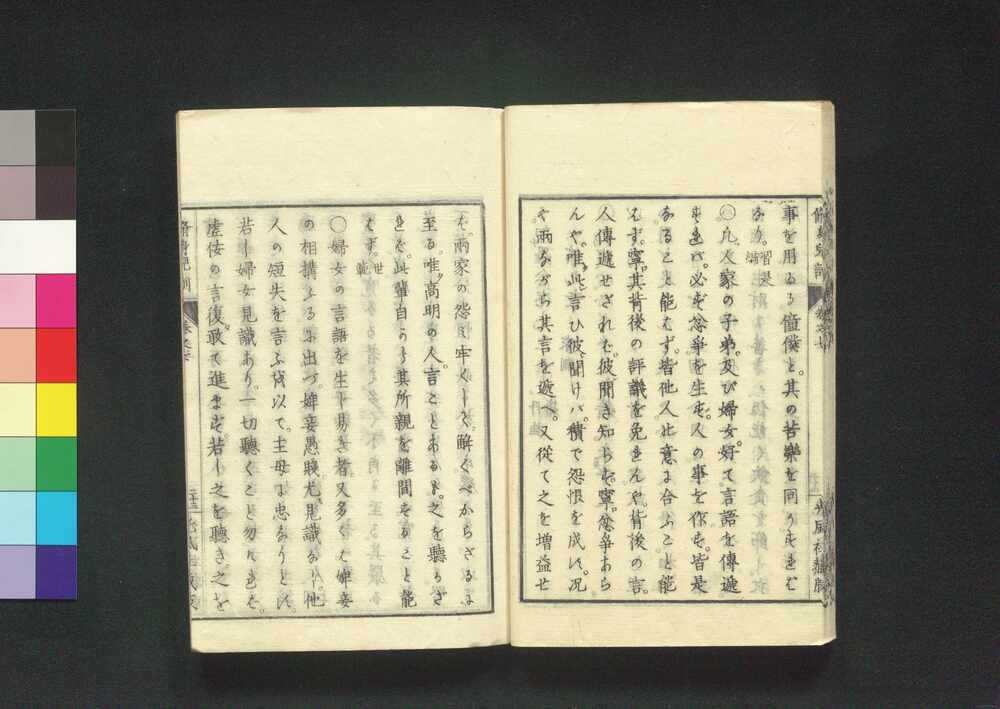 事を用るる僮僕と。其の苦樂を同うせをむ
凡。人家の子弟及び婦女。好て言語を傳遞
をれバ。必ず忿爭を生ず。人の事を作す。皆是
なること能はず。皆他人の意に合ふこと能
はず。寧。其背後の評議を免をんや。背後の言。
人傳遞せざれば。彼聞き知らず。寧。忿爭あら
んや。唯。此言ひ彼。聞けバ。積て怨恨を成に。况
や兩ながら其言を遞へ。又從て之を増益せ
ば。兩家の怨み牢くして。解くべからざるに
至る。唯。高明の人。言ことあるも。之を聽かざ
れば。此輩自から其所親を離間をること能
はず。世範
〇婦女の言語を生じ易き者。又多くは婢妾
の相搆ふるに出づ。婢妾愚賤。尤。見識なし。他
人の短失を言ふを以て。主母に忠なりとに。
若し婦女見識あり。一切聽くこと勿れをば。
虚佞の言。復。敢て進まず。若し之を聽き。之を